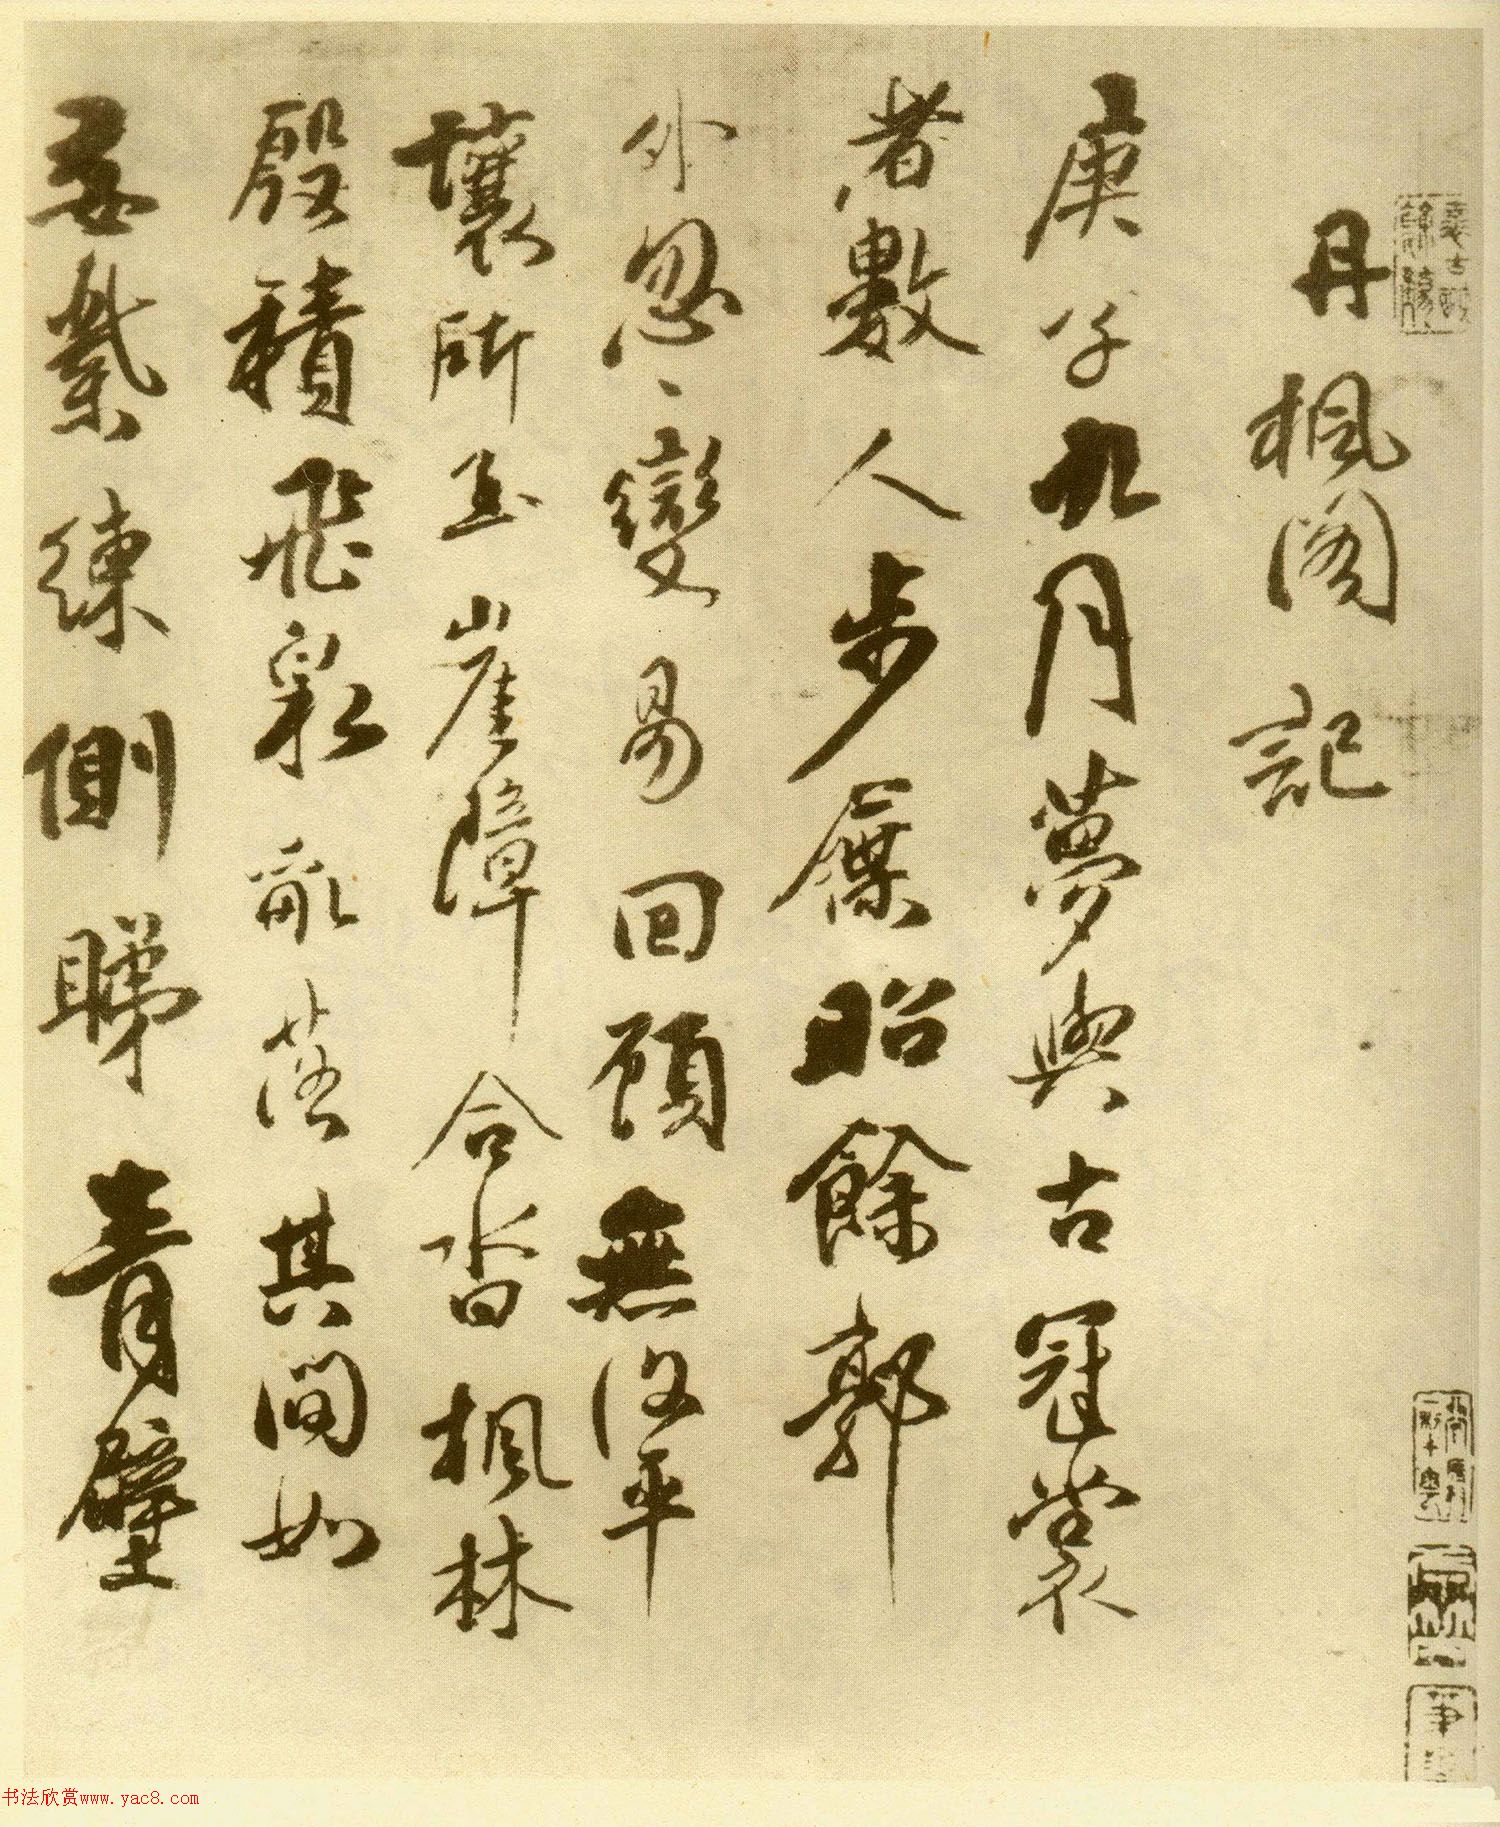 丹楓閣記
庚子九月夢與古冠裳
者數人步屧昭餘郭
外忽忽變易回顧無復平
壤所至崖障合沓楓林
殷積飛泉亂落其間如
委縈練側睇青壁
书法欣赏www.yac8.com